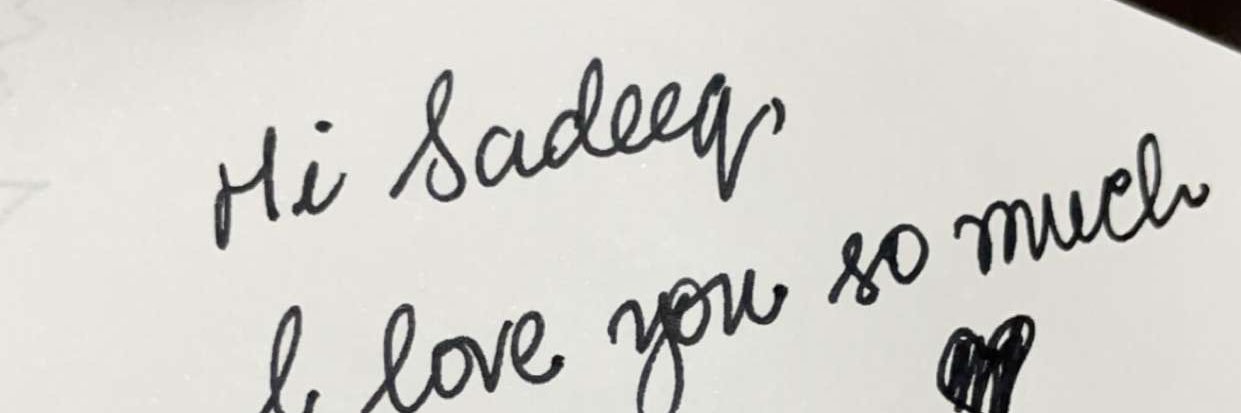 Hi Sadeeq,
I love you so much